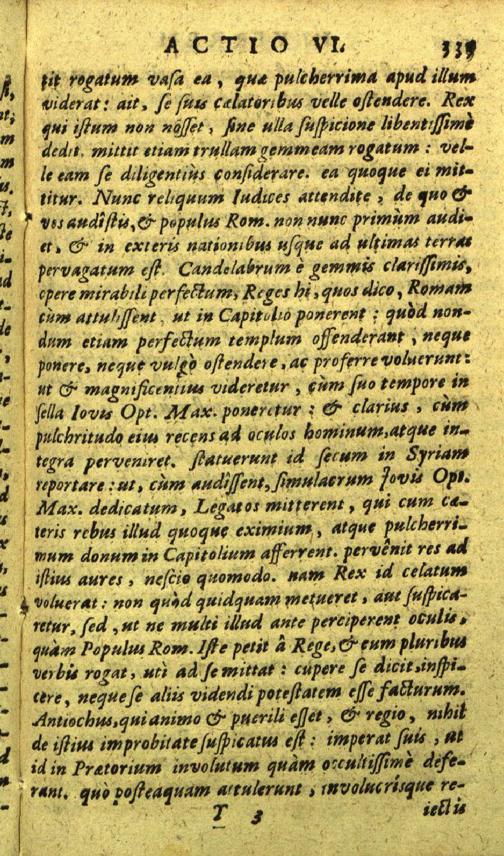 ACTIO VI. 339
tit rogatum vasa ea, quæ pulcherrima apud illum
viderat: ait, se suis cælatoribus velle ostendere. Rex
qui istum non nosset, sine ulla suspicione libentissimè
dedit. mittit etiam trullam gemmeam rogatum: vel-
le eam se diligentiùs considerare. ea quoque ei mit-
titur. Nunc reliquum Iudices attendite, de quo &
vos audîstis, & populus Rom. non nunc primùm audi-
et, & in exteris nationibus usque ad ultimas terras
pervagatum est. Candelabrum è gemmis clarissimis,
opere mirabili perfectum, Reges hi, quos dico, Romam
cùm attulissent, ut in Capitolio ponerent: quòd non-
dum etiam perfectum templum offenderant, neque
ponere, neque vulgò ostendere, ac proferre voluerunt:
ut & magnificentius videretur, cùm suo tempore in
sella Iovis Opt. Max. poneretur: & clarius, cùm
pulchritudo eius recens ad oculos hominum, atque in-
tegra perveniret. statuerunt id secum in Syriam
reportare: ut, cùm audissent, simulacrum Jovis Opt.
Max. dedicatum, Legatos mitterent, qui cum cæ-
teris rebus illud quoque eximium, atque pulcherri-
mum donum in Capitolium afferrent. pervênit res ad
istius aures, nescio quomodo. nam Rex id celatum
voluerat: non quòd quidquam metueret, aut suspica-
retur, sed, ut ne multi illud ante perciperent oculis,
quàm Populus Rom. Iste petit â Rege, & eum pluribus
verbis rogat, utì ad se mittat: cupere se dicit, inspi-
cere, neque se aliis videndi potestatem esse facturum.
Antiochus, qui animo & puerili esset, & regio, nihil
de istius improbitate suspicatus est: imperat suis, ut
id in Prætorium involutum quàm occultissimè defe-
rant. quò posteaquam attulerunt, involucrisque re-
T 3 iectis